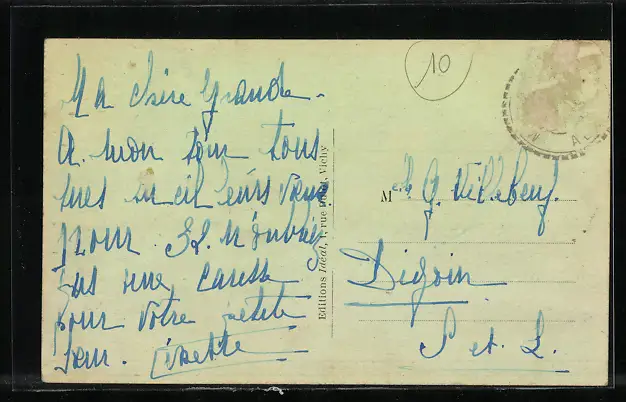 Ma chère grande
A mon tour tous
mes meilleurs vœux
pour
pas une caresse
pour votre petite
sœur.
10
Editions Idéal, 1, rue Vichy
Melle G. Villebeuf
Digoin
S et L.